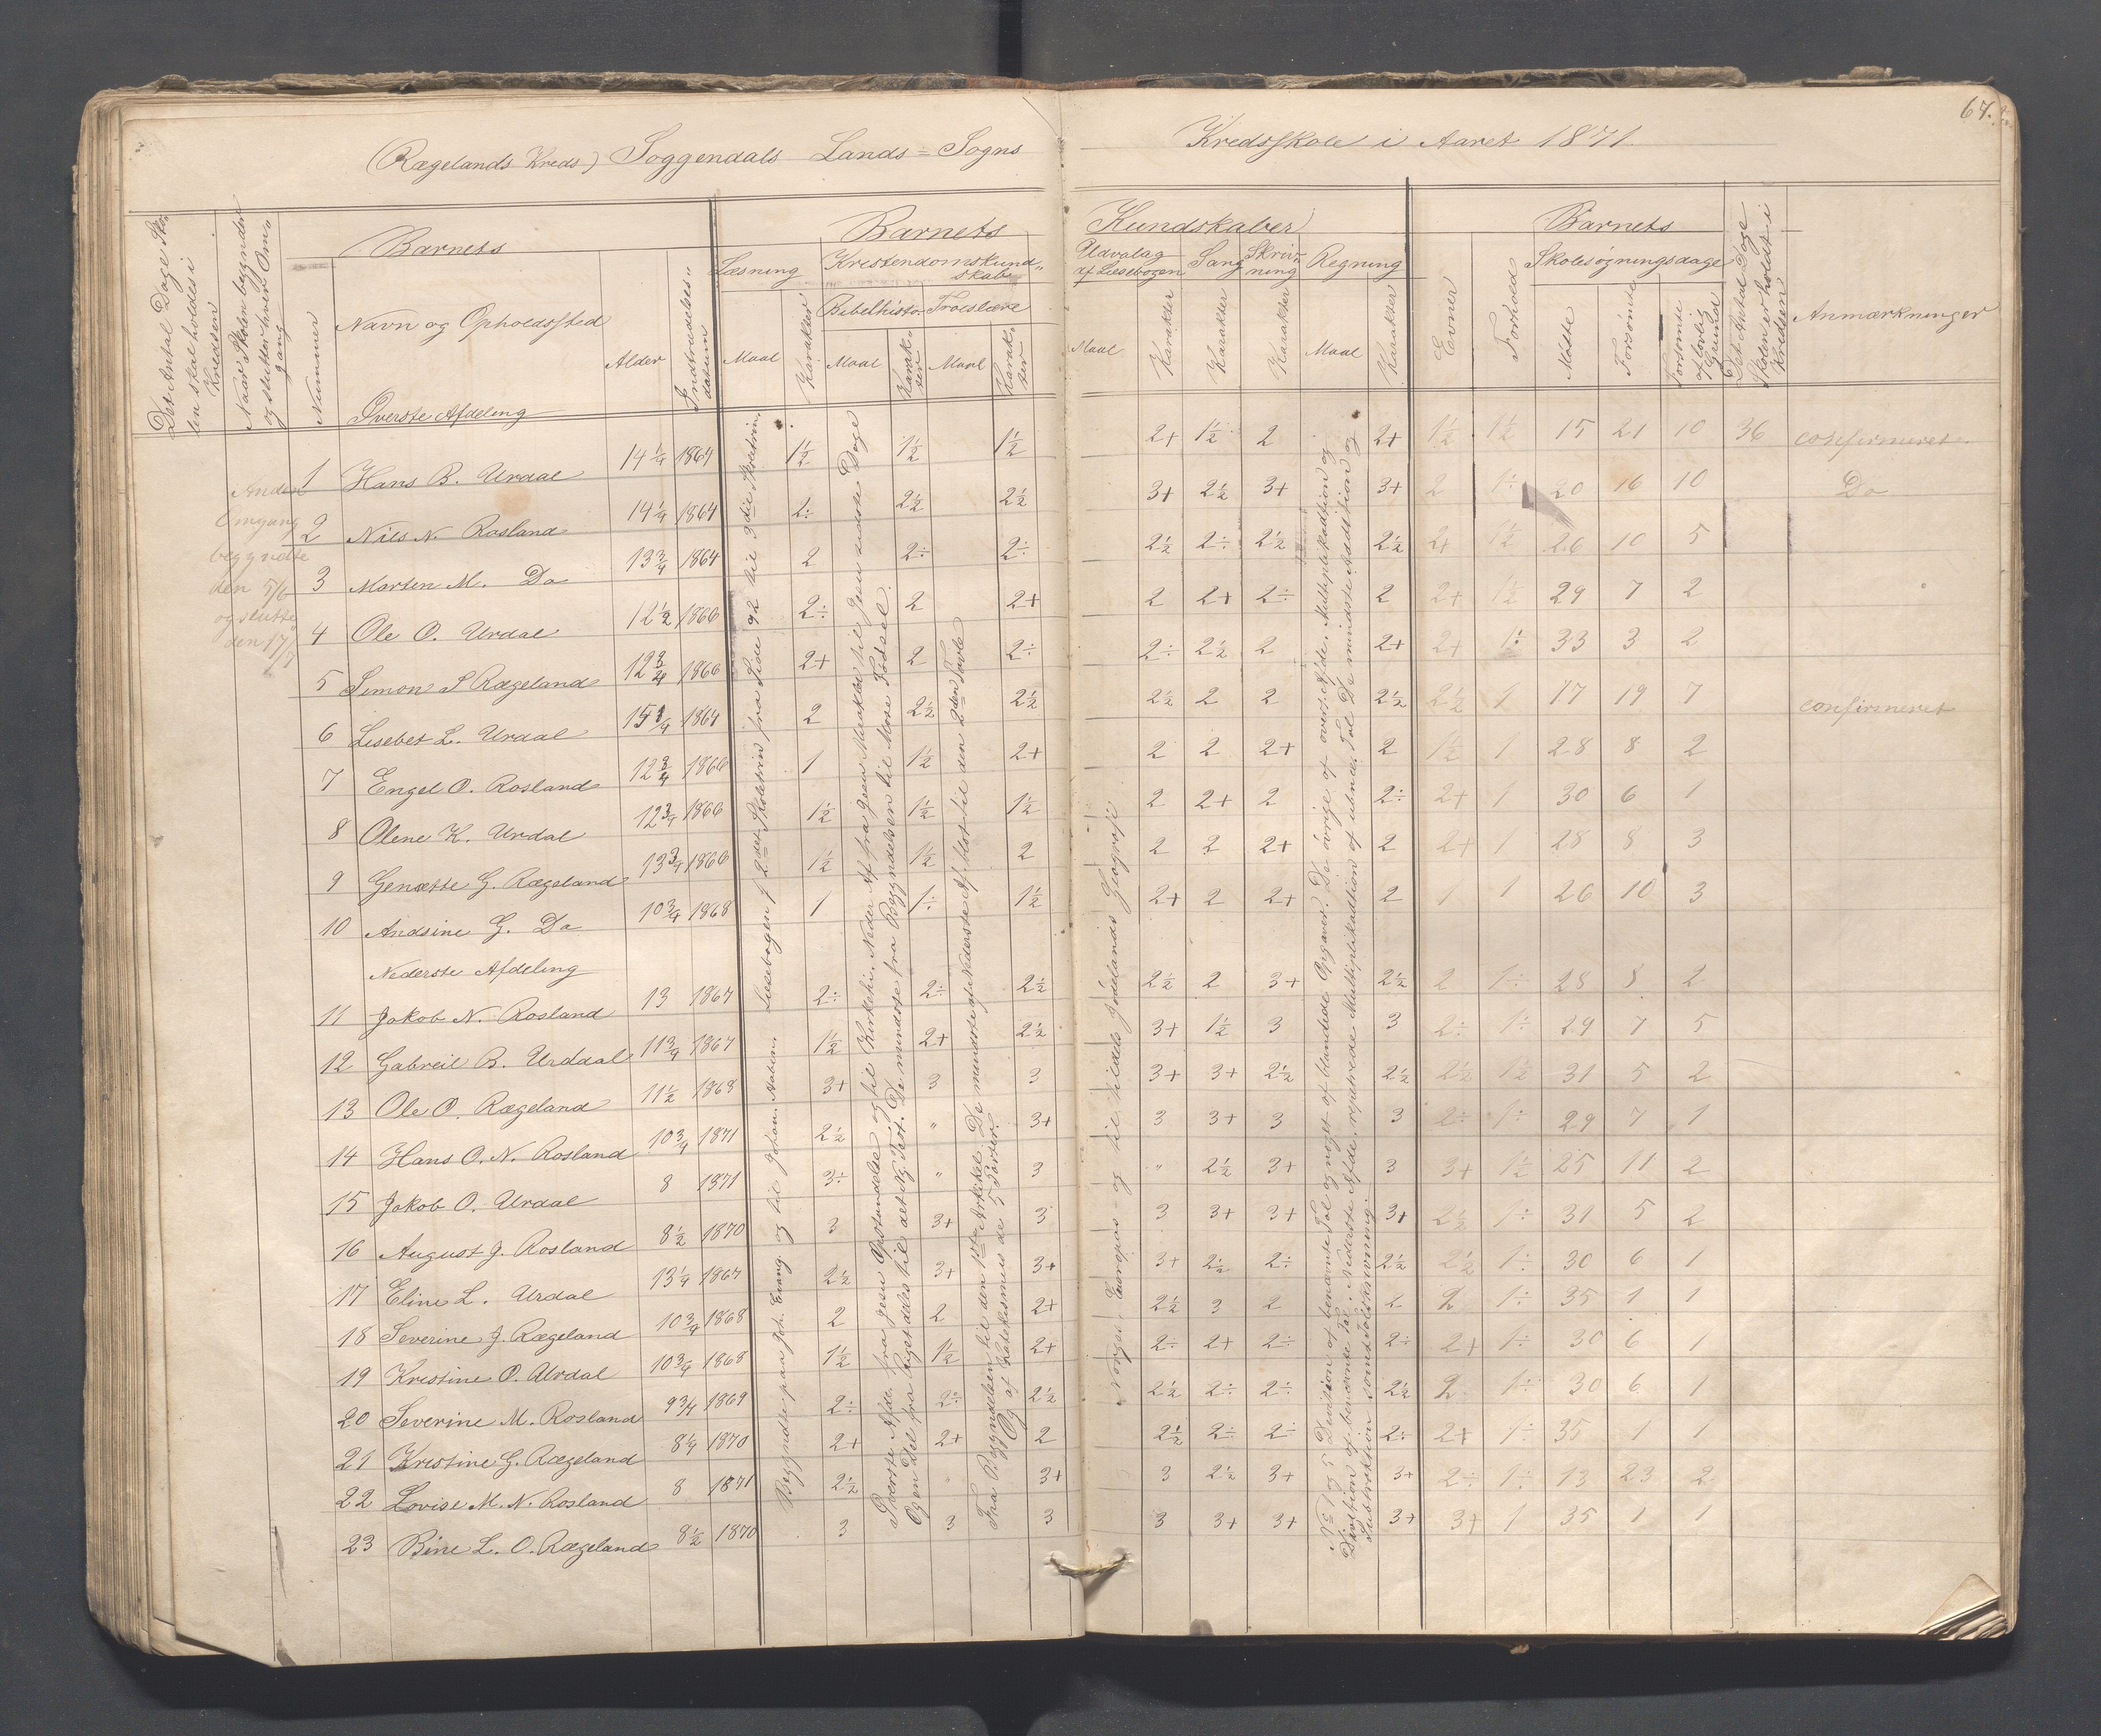 67.
(Rægelands Kreds) Soggendals Lands = Sogns Kredsskole i Aaret 1871.
Det Antal Dage Skolen skal holdes i Kredsen
Naar Skolen begynder og slutter hver Omgang
Barnets
Nummer
Navn og Opholdssted
Alder
Indtrædelsesdatum
Barnets Kundskaber
Læsning
Maal
Karakter
Kristendomskundskab
Bibelhistor.
Maal
Karakter
Troeslære
Maal
Karakter
Udvalag af Læsebogen
Maal
Karakter
Sang
Karakter
Skrivning
Karakter
Regning
Maal
Karakter
Barnets
Evner
Forhold
Skolesøgningsdage
Mødte
Forsømte
Forsømte af lovlig Grund
Det Antal Dage Skolen er holdt i Kredsen
Anmærkninger
Øverste Afdeling
Anden
Omgang
begyndte
den 5/6
og slutte
den 17/7
1 Hans B. Urdal 14 1/4 1864 1½ 1½ 1½ 2+ 1½ 2 2+ 1½ 1½ 15 21 10 36 confirmeret
2 Nils N. Rosland 14 1/4 1864 2÷ 2½ 2½ 3+ 2½ 3+ 3+ 2 1÷ 20 16 10 Do
3 Morten M. Do 13 3/4 1864 2 2÷ 2÷ 2½ 2÷ 2½ 2½ 2+ 1½ 26 10 5
4 Ole O. Urdal 12½ 1866 2÷ 2 2+ 2 2+ 2÷ 2 2+ 1½ 29 7 2
5 Simon S Rægeland 12 3/4 1866 2+ 2 2÷ 2÷ 2½ 2 2+ 2+ 1÷ 33 3 2
6 Lisebet L. Urdal 15 1/4 1864 2 2½ 2½ 2½ 2 2 2½ 2½ 1 17 19 7 confirmeret
7 Engel O. Rosland 12 3/4 1866 1 1½ 2+ 2 2 2+ 2 1½ 1 28 8 2
8 Olene K. Urdal 12 3/4 1866 1½ 1½ 1½ 2 2+ 2 2÷ 2+ 1 30 6 1
9 Genætte G. Rægeland 13 3/4 1866 1½ 1½ 2 2 2 2+ 2 2+ 1 28 8 3
10 Andsine G. Do 10 3/4 1868 1 1÷ 1½ 2+ 2 2+ 2 1 1 26 10 3
Nederste Afdeling
11 Jakob N. Rosland 13 1867 2÷ 2÷ 2½ 2½ 2 3+ 2½ 2 1÷ 28 8 2
12 Gabreil B. Urddal 11 3/4 1867 1½ 2+ 2½ 3+ 1½ 3 3 2÷ 1÷ 29 7 5
13 Ole O. Rægeland 11½ 1868 3+ 3 3 3+ 3+ 2½ 2½ 2½ 1½ 31 5 2
14 Hans O. N. Rosland 10 3/4 1871 2½ " 3+ 3 3+ 3 3 2÷ 1÷ 29 7 1
15 Jakob O. Urdal 8 1871 3÷ " 3 " 2½ 3+ 3 3+ 1½ 25 11 2
16 August J. Rosland 8½ 1870 3 3+ 3 3 3+ 3+ 3+ 2½ 1÷ 31 5 2
17 Eline L. Urdal 13 1/4 1867 2½ 3+ 3+ 3+ 2½ 2÷ 2½ 2½ 1÷ 30 6 1
18 Severine J. Rægeland 10 3/4 1868 2 2 2+ 2½ 3 2 2 2 1÷ 35 1 1
19 Kristine O. Urdal 10 3/4 1868 1½ 1½ 2+ 2÷ 2+ 2÷ 2÷ 2+ 1÷ 30 6 1
20 Severine M. Rosland 9 3/4 1869 2÷ 2÷ 2½ 2½ 2÷ 2÷ 2½ 2 1÷ 30 6 1
21 Kristine G. Rægeland 8 1/4 1870 2+ 2+ 2 2½ 2÷ 2÷ 2÷ 2+ 1÷ 35 1 1
22 Lovise M. N. Rosland 8 1871 2½ " 3+ 3 2½ 3+ 3+ 2÷ 1÷ 13 23 2
23 Bine L. O. Rægeland 8½ 1870 3 3 3 3 3+ 3+ 3+ 3+ 1 35 1 1
Læsebogen 2det Skoletrin fra Side 92 til 3die Skoletrin.
Begyndte paa Joh. Evang. og til Johan.
Øverste Afde. fra Jesu Opstandelse og til Kirkehi. Neder Af fra Jesu Mirakler til Jesu sidste Dage
Og en Del fra til det Ny. Test. De mindste fra Begyndelsen til Mose Fødsel.
Fra Begyndelsen til den 1ste Artikel. De mindste af Nederste Af blot til den 2den Tavle
Og af Katekismus de 5 Parter.
Norges Europas - og til Hildels Jødelands Geografi
No 1 og 5 Division af benævnte Tal og noget af blandede Opgaver. De øvrige af overs. Afde. Multiplikadtion og
Divition af benævnte Tal. Nederste Afde. repetrede Multiplikadtion af ubnæ. Tal De mindste Addition og
Subtraktion samt Talskrivning.